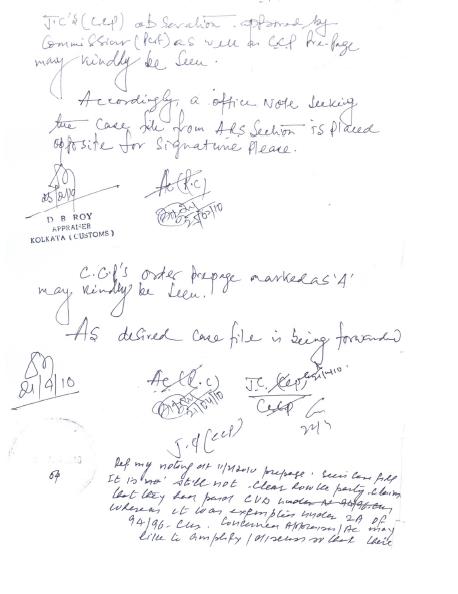 J.C's (CCP) observation approved by
Commissioner (Port) as well as CCP Pre-page
may kindly be seen.
Accordingly, a office Note seeking
the case file from ARS Section is placed
opposite for signature please.
D B ROY
APPRAISER
KOLKATA (CUSTOMS)
AC (P.C)
C.C.P's order prepage marked as 'A'
may kindly be seen.
As desired case file is being forwarded
21/4/10
AC (P.C) J.C. (CCP)
21/04/10
J.C (CCP)
Ref my noting dt prepage. Seen case file
It is not still not clear how the party claims
that they have paid CVD under 94/96-Cus
whereas it was exemption under 2A of
94/96-Cus. Concerned Appraiser/AC may
like to amplify/discuss